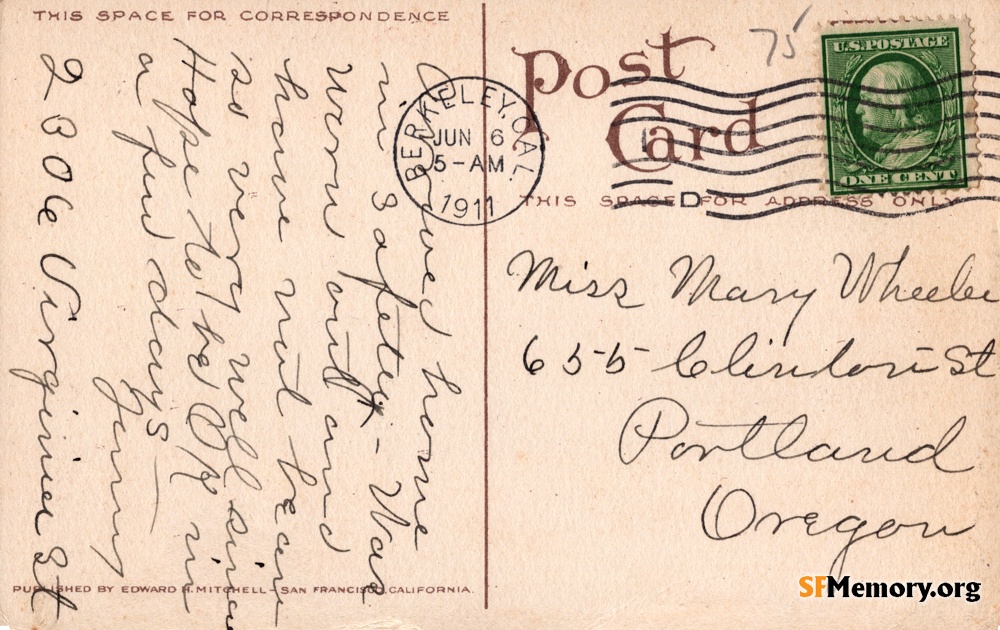 THIS SPACE FOR CORRESPONDENCE
Post
Card
75
U.S. POSTAGE
ONE CENT
BERKELEY, CAL.
JUN 6
5-AM
1911
D
THIS SPACE FOR ADDRESS ONLY
Miss Mary Wheeler
655 Clinton St
Portland
Oregon
home
in 3 after - Was
worn out and
have not been
so very well since
Hope to be OK in
a few days
2306 Virginia St
PUBLISHED BY EDWARD H. MITCHELL - SAN FRANCISCO, CALIFORNIA.
SFMemory.org